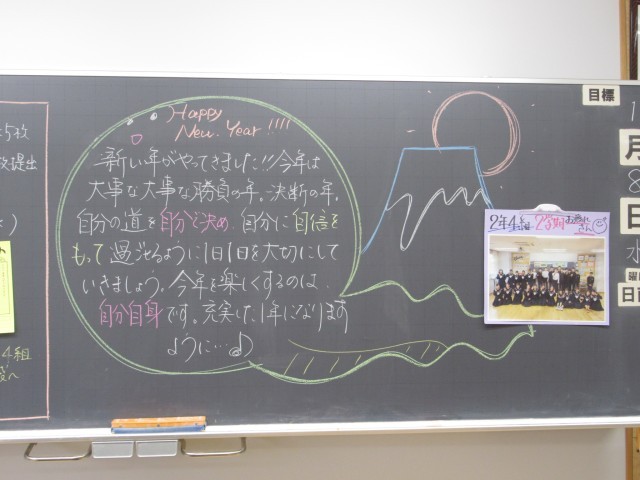 Happy
New Year!!!!
新しい年がやってきました!!!今年は
大事な大事な勝負の年。決断の年。
自分の道を自分で決め、自分に自信を
もって過ごせるように1日1日を大切にして
いきましょう。今年を楽しくするのは、
自分自身です。充実した1年になります
ように…♪
2年4組 2学期お疲れさん
目標
1
月
8
日
水
曜
日直
5枚
提出
4組